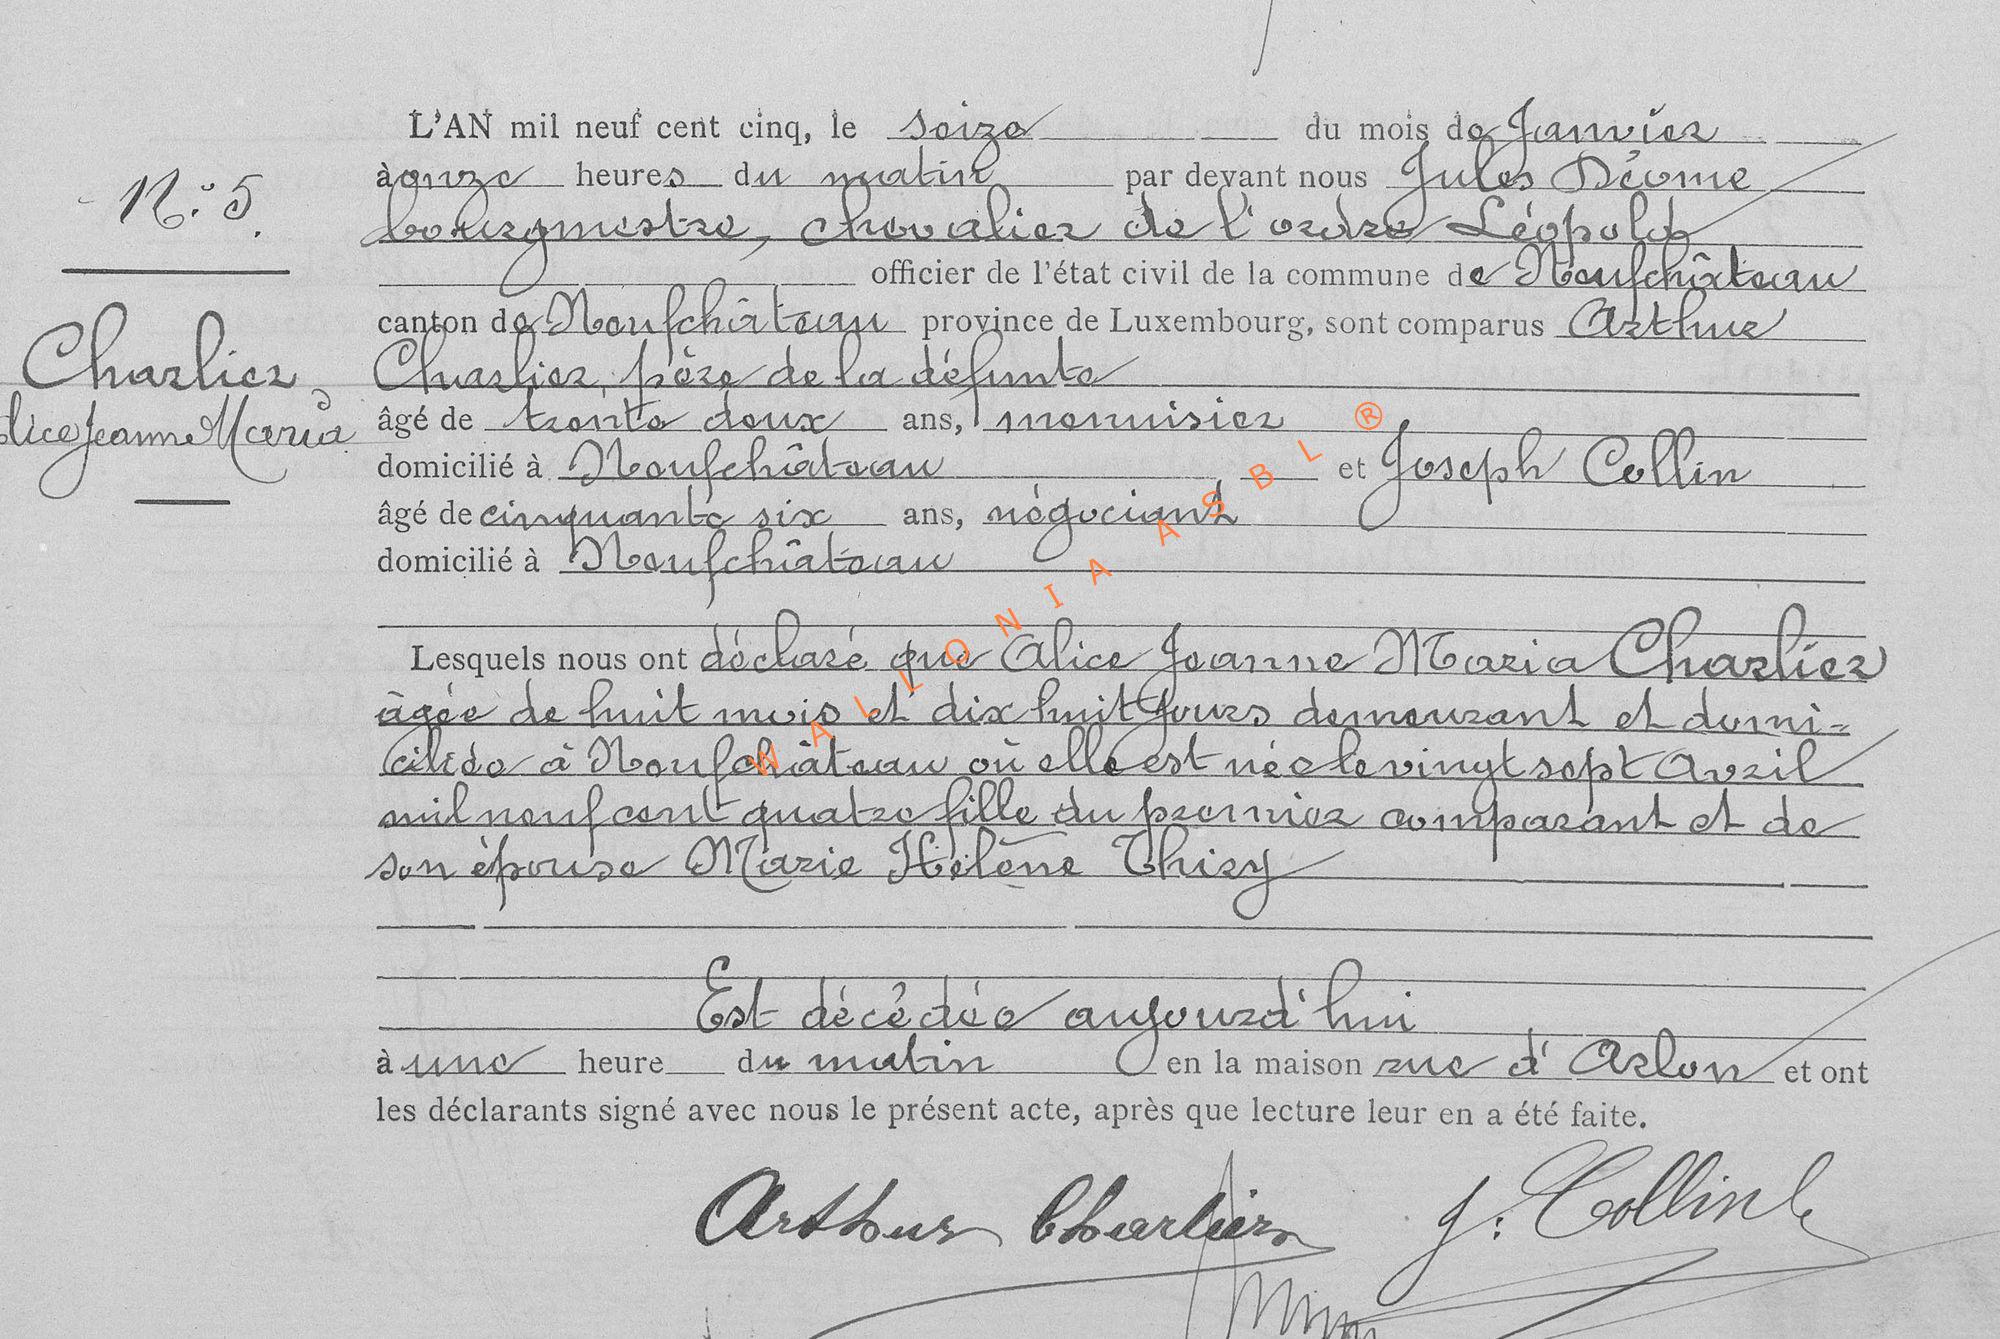 L'AN mil neuf cent cinq, le seize du mois de Janvier
à onze heures du matin par devant nous Jules Déome
N.° 5.
bourgmestre, chevalier de l'ordre Léopold
officier de l'état civil de la commune de Neufchâteau
canton de Neufchâteau province de Luxembourg, sont comparus Arthur
Charlier,
Charlier, père de la défunte
lice Jeanne Maria
âgé de trente deux ans, menuisier
domicilié à Neufchâteau et Joseph Collin
âgé de cinquante six ans, négociant
domicilié à Neufchâteau
WALLONIA ASBL ®
Lesquels nous ont déclaré que Alice Jeanne Maria Charlier
âgée de huit mois et dix huit jours demeurant et domi=
ciliée à Neufchâteau où elle est née le vingt sept Avril
mil neuf cent quatre fille du premier comparant et de
son épouse Marie Hélène Thiry
Est décédée aujourd'hui
à une heure du matin en la maison rue d'Arlon et ont
les déclarants signé avec nous le présent acte, après que lecture leur en a été faite.
Arthur Charlier J. Collin